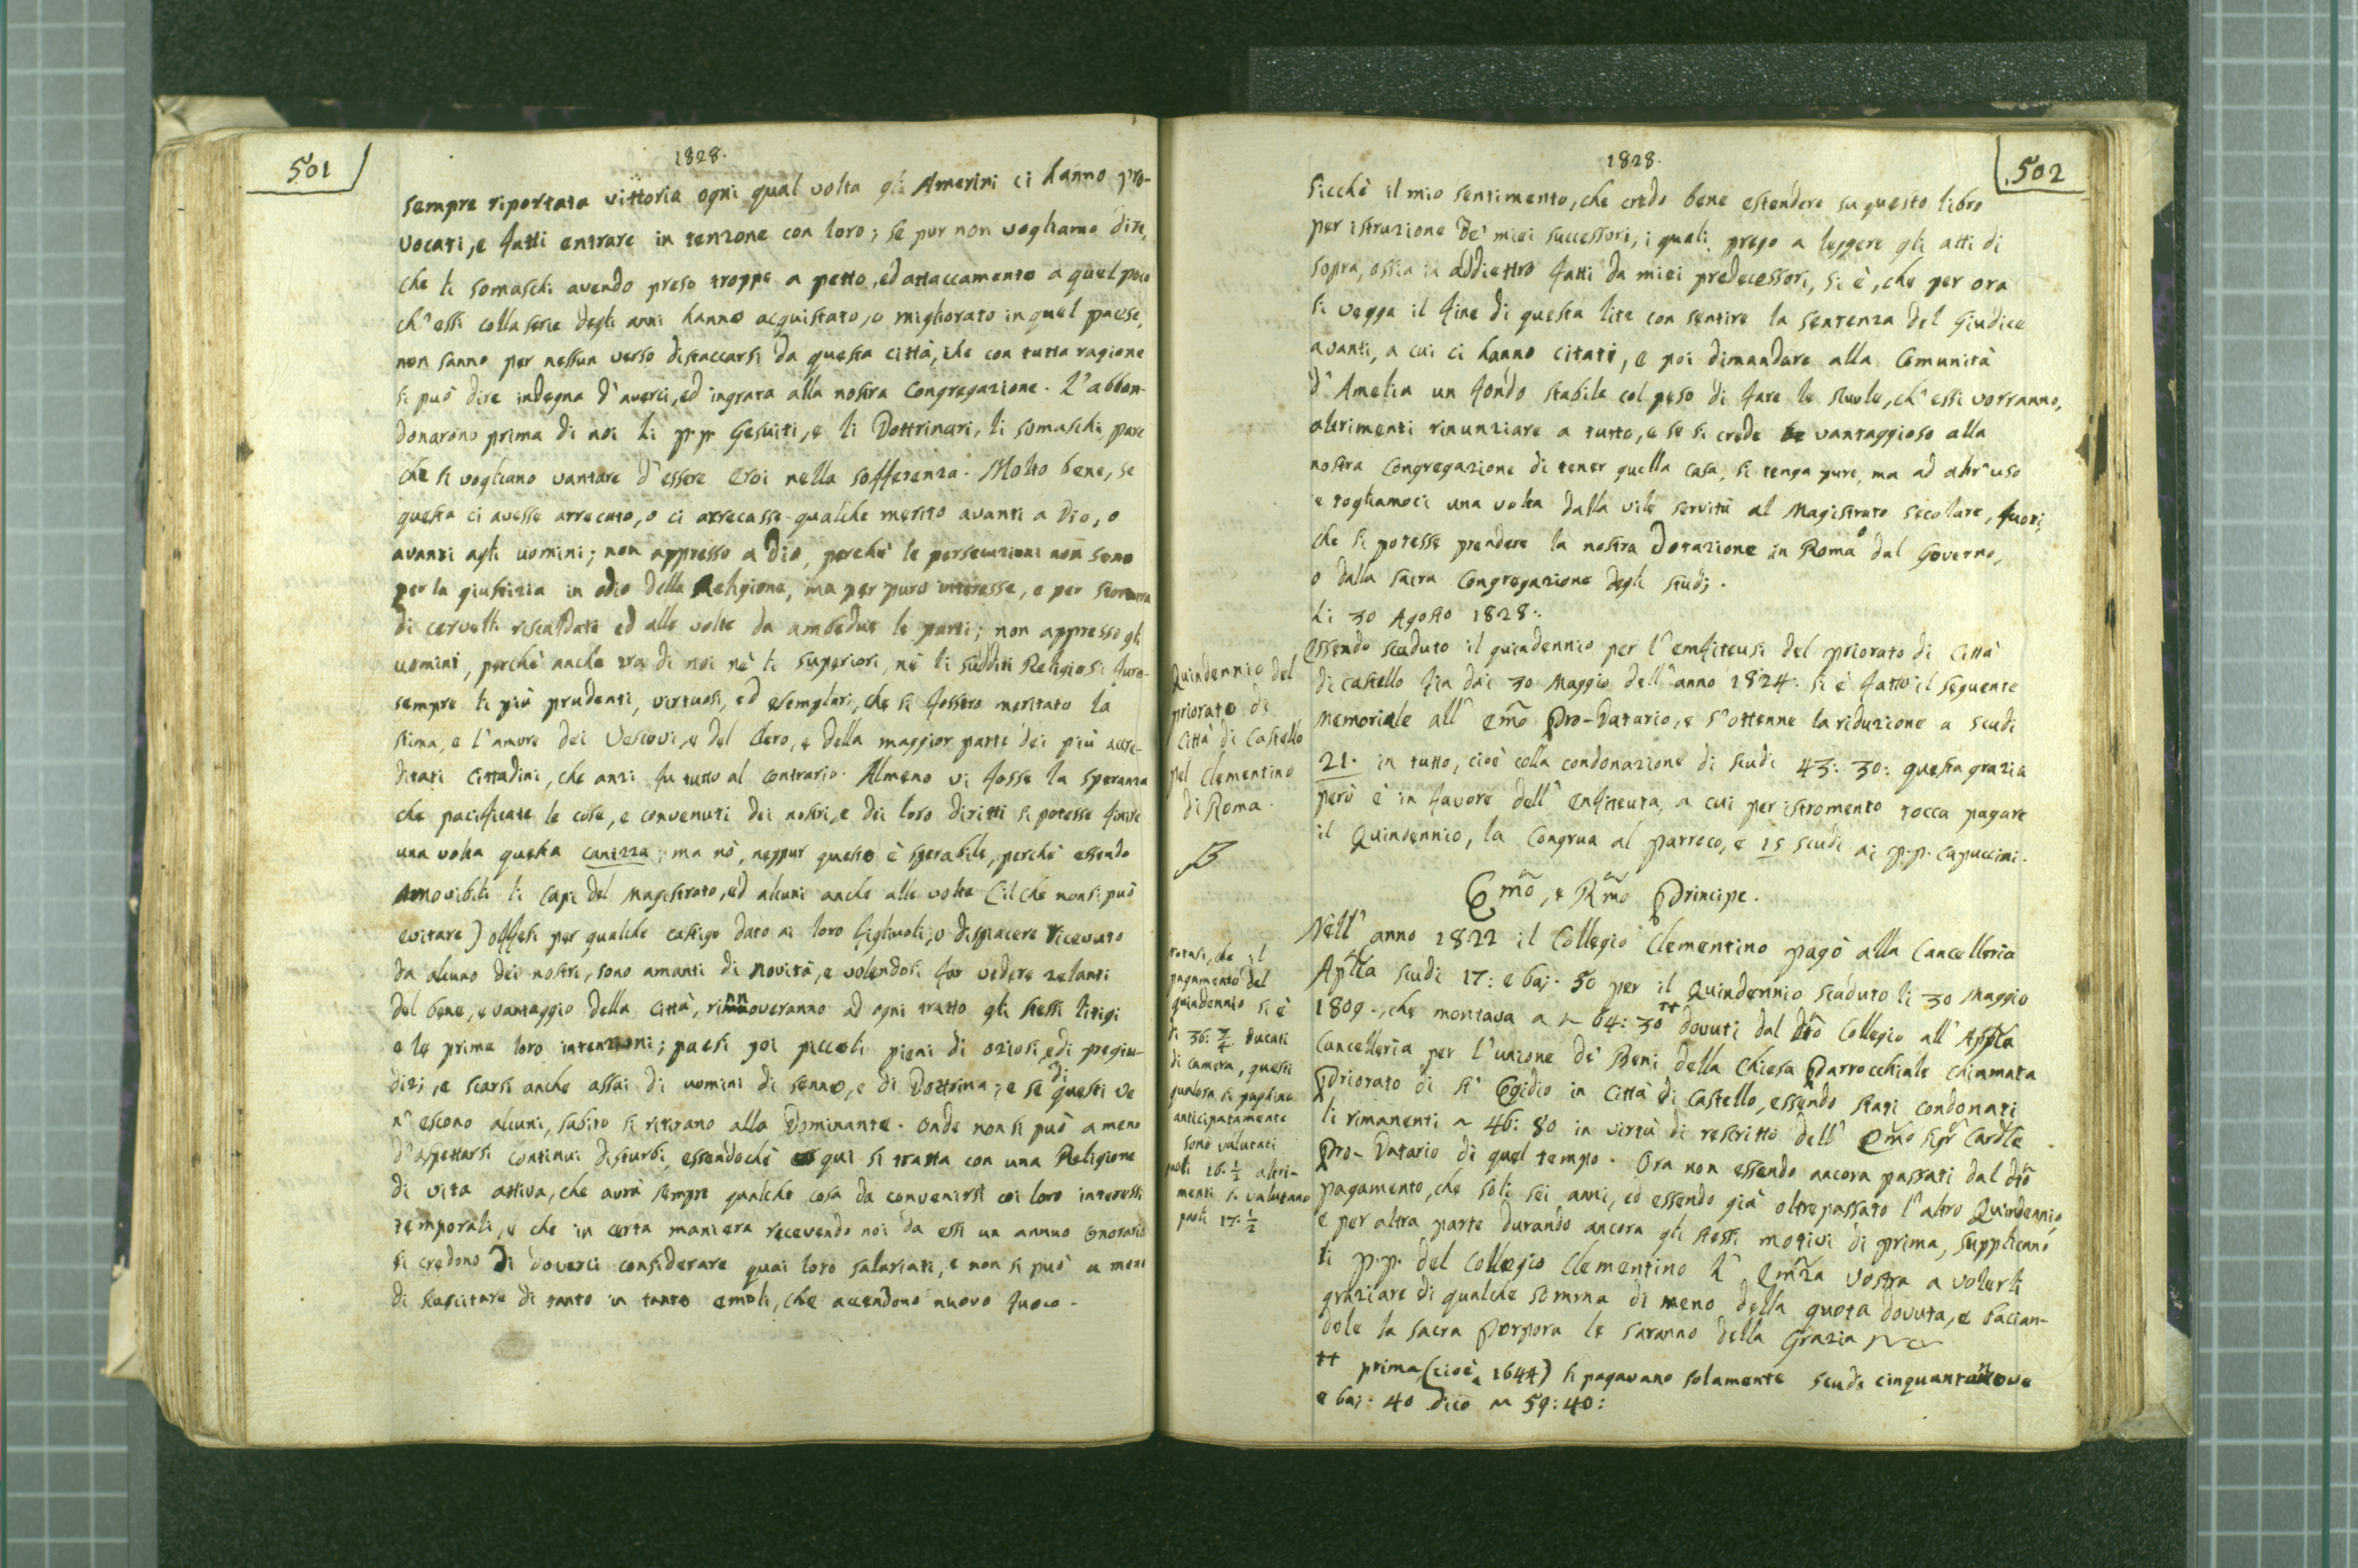 501
1828.
sempre riportata vittoria ogni qual volta gli Amerini ci hanno pro-
vocati, e fatti entrare in tenzone con loro; se pur non vogliamo dire,
che li somaschi avendo preso troppo a petto, ed attaccamento a quel poco
ch'essi colla serie degli anni hanno acquistato, o migliorato in quel paese,
non sanno per nessun verso distaccarsi da questa città, che con tutta ragione
si può dire indegna d'averci, ed ingrata alla nostra Congregazione. L'abban-
donarono prima di noi li p.p. Gesuiti, e li Dottrinari, li somaschi pare
che si vogliano vantare d'essere Eroi nella sofferenza. Molto bene, se
questa ci avesse arrecato, o ci arrecasse qualche merito avanti a Dio, o
avanti agli uomini; non appresso a Dio, perchè le persecuzioni non sono
per la giustizia in odio della Religione, ma per puro interesse, e per
di cervelli riscaldati ed alle volte da ambedue le parti; non appresso gli
uomini, perchè anche tra di noi nè li superiori, nè li sudditi Religiosi furo-
sempre li più prudenti, virtuosi, ed esemplari, che si fossero meritato la
stima, e l'amore dei Vescovi, e del Clero, e della maggior parte dei più accre-
ditati Cittadini, che anzi fu tutto al contrario. Almeno vi fosse la speranza
che pacificate le cose, e convenuti dei nostri, e dei loro diritti si potesse finire
una volta questa canizza; ma nò, neppur questo è sperabile, perchè essendo
amovibili li Capi del Magistrato, ed alcuni anche alle volte (il che non si può
evitare) offesi per qualche castigo dato ai loro figliuoli, o dispiacere ricevuto
da alcuno dei nostri, sono amanti di novità, e volendosi far vedere zelanti
del bene, e vantaggio della Città, rinnoveranno ad ogni tratto gli stessi litigi
e le prime loro intenzioni; paesi poi piccoli pieni di oziosi, e di pregiu-
dizj, e scarsi anche assai di uomini di senno, e di Dottrina; e se di questi ve
n'escono alcuni, subito si ritirano alla Dominante. Onde non si può a meno
d'aspettarsi continui disturbi, essendochè qui si tratta con una Religione
di vita attiva, che avrà sempre qualche cosa da convenirsi coi loro interessi
temporali, e che in certa maniera recevendo noi da essi un annuo Onorario
si credono di doverci considerare quai loro salariati, e non si può a meno
di suscitare di tanto in tanto emoli, che accendono nuovo fuoco.
502
1828.
Sicchè il mio sentimento, che credo bene estendere su questo libro
per istruzione de' miei successori, i quali prego a leggere gli atti di
sopra, ossia in addiettro fatti da miei predecessori, si è, che per ora
si vegga il fine di questa lite con sentire la sentenza del Giudice
avanti, a cui ci hanno citati, e poi dimandare alla Comunità
d'Amelia un fondo stabile col peso di fare le scuole, ch'essi vorranno,
altrimenti rinunziare a tutto, e se si crede vantaggioso alla
nostra Congregazione di tener quella casa, si tenga pure, ma ad altr'uso
e togliamoci una volta dalla vile servitù al Magistrato secolare, fuori
che si potesse prendere la nostra Dotazione in Roma o dal Governo,
o dalla sacra Congregazione degli studj.
Li 30 Agosto 1828:
Essendo scaduto il quindennio per l'emfiteusi del priorato di Città
di Castello fin dai 30 Maggio dell'anno 1824: si è fatto il seguente
memoriale all' Emo Pro-Datario, e s'ottenne la riduzione a scudi
21. in tutto, cioè colla condonazione di scudi 43: 30: questa grazia
però è in favore dell' Enfiteuta, a cui per istromento tocca pagare
il Quindennio, la Congrua al parroco, e 15 scudi ai p.p. Capuccini.
Quindennio del
priorato di
Città di Castello
pel Clementino
di Roma.
Emo, e Rmo Principe.
Nell' anno 1822 il Collegio Clementino pagò alla Cancelleria
Aplla scudi 17: e baj. 50 per il Quindennio scaduto li 30 Maggio
1809., che montava a ~ 64: 30 ++ dovuti dal dto Collegio all' Appla
Cancelleria per l'unione de' Beni della Chiesa Parrocchiale chiamata
Priorato di S. Egidio in Città di Castello, essendo stati condonati
li rimanenti ~ 46: 80 in virtù di rescritto dell' Emo Sigr Cardle
Pro-Datario di quel tempo. Ora non essendo ancora passati dal dto
pagamento, che soli sei anni, ed essendo già oltrepassato l'altro Quindennio,
e per altra parte durando ancora gli stessi motivi di prima, supplicano
li p.p. del Collegio Clementino L' Emza Vostra a volerli
graziare di qualche somma di meno della quota dovuta, e bacian-
dole la sacra Porpora le saranno della Grazia
++ prima (cioè a 1644) si pagavano solamente scudi cinquantanove
e baj. 40 dico ~ 59: 40:
notasi, che il
pagamento del
quindennio si è
di 36: 3/4 ducati
di camera, questi
qualora si paghino
anticipatamente
sono valutati
paoli 16. 1/2 altri-
menti si valutano
paoli 17. 1/2